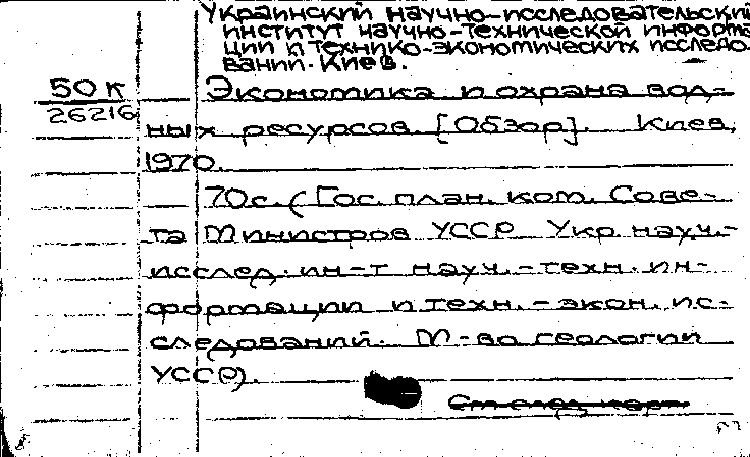 Украинский научно-исследовательский
институт научно-технической информа
ции и технико-экономических исследо
ваний. Киев.
50к
26216
Экономика и охрана вод-
ных ресурсов. [Обзор]. Киев,
1970.
70с. (Гос. план. ком. Сове-
та Министров УССР. Укр. науч.-
исслед. ин-т науч.-техн. ин-
формации и техн.-экон. ис-
следований. М-во геологии
УССР).
См. след. карт.